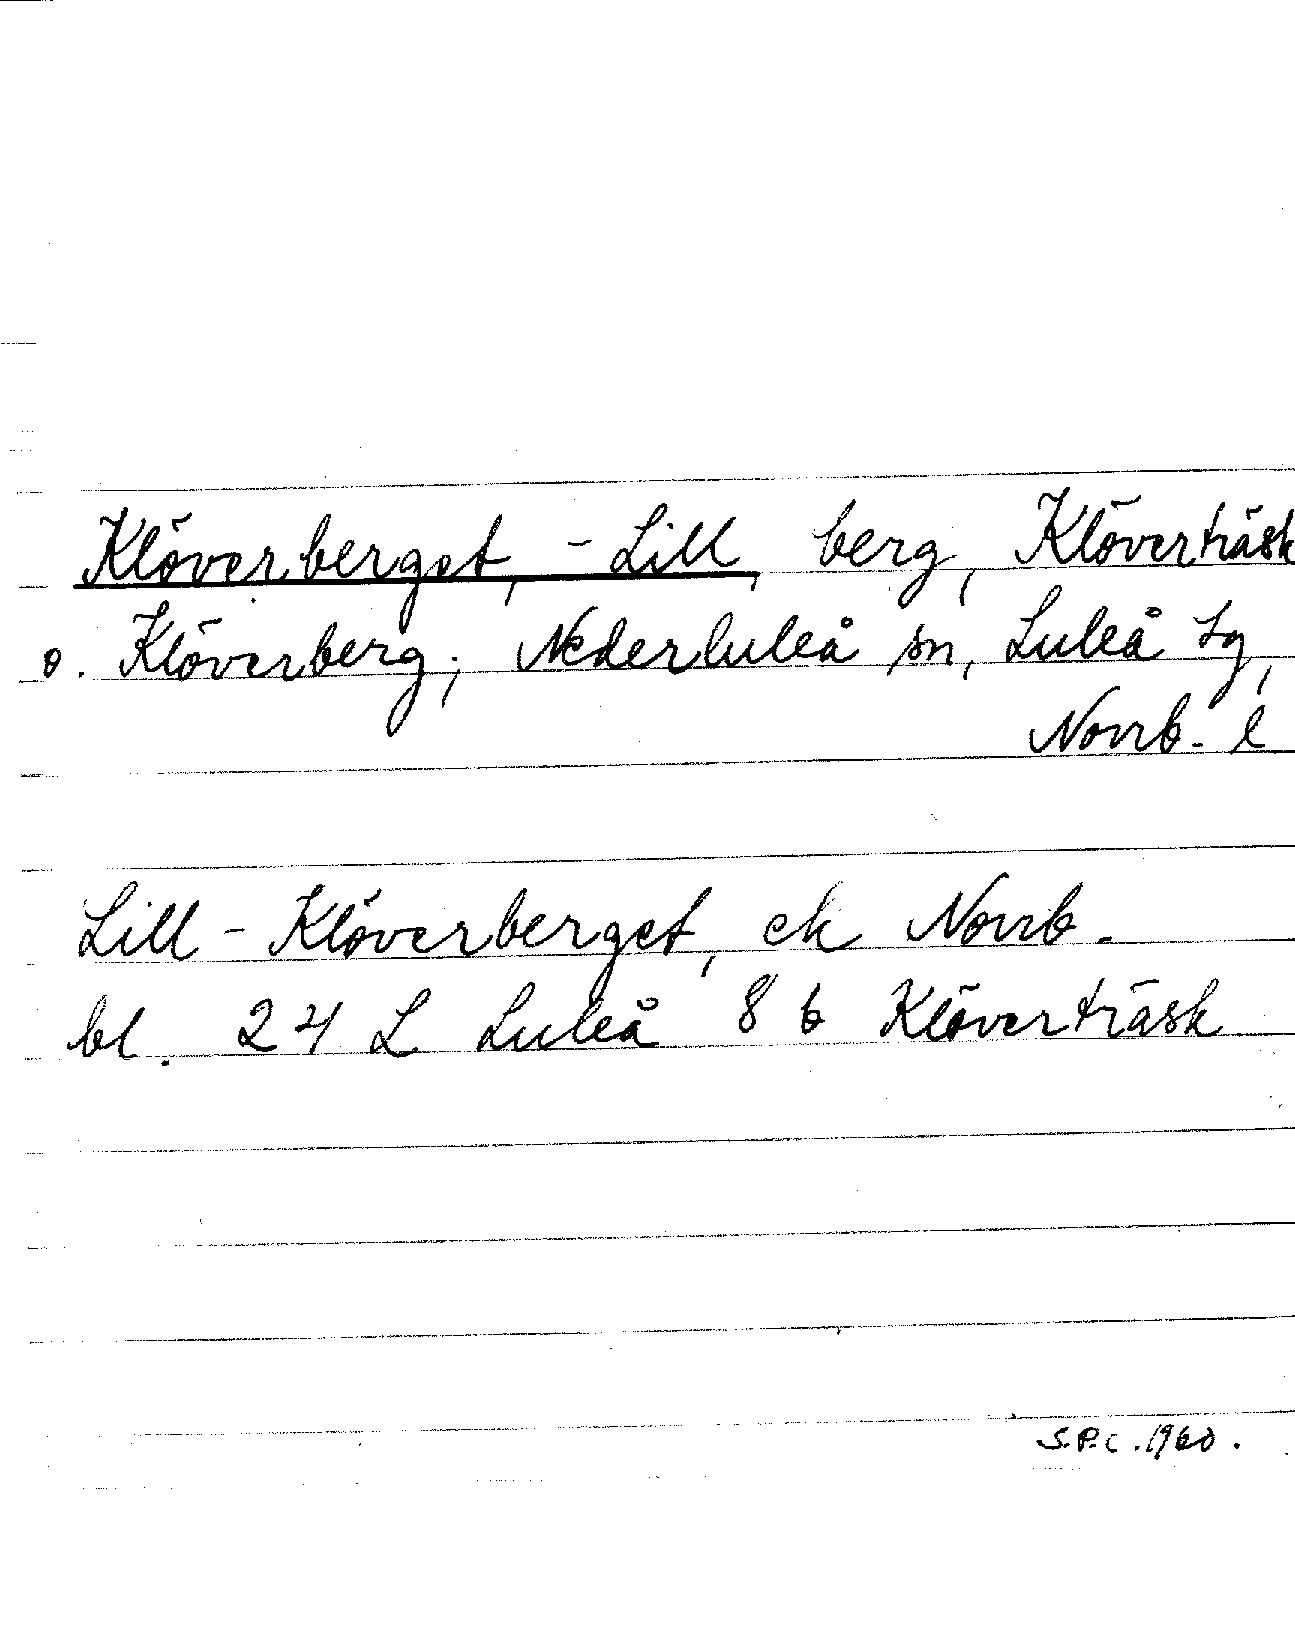 Klöverberget, -Lill, berg, Klöverträsk
o. Klöverberg, Nederluleå sn, Luleå tg,
Norrb. l
Lill-Klöverberget, ek Norrb.
bl. 24 L Luleå 8 b Klöverträsk
S.P.C. 1960.